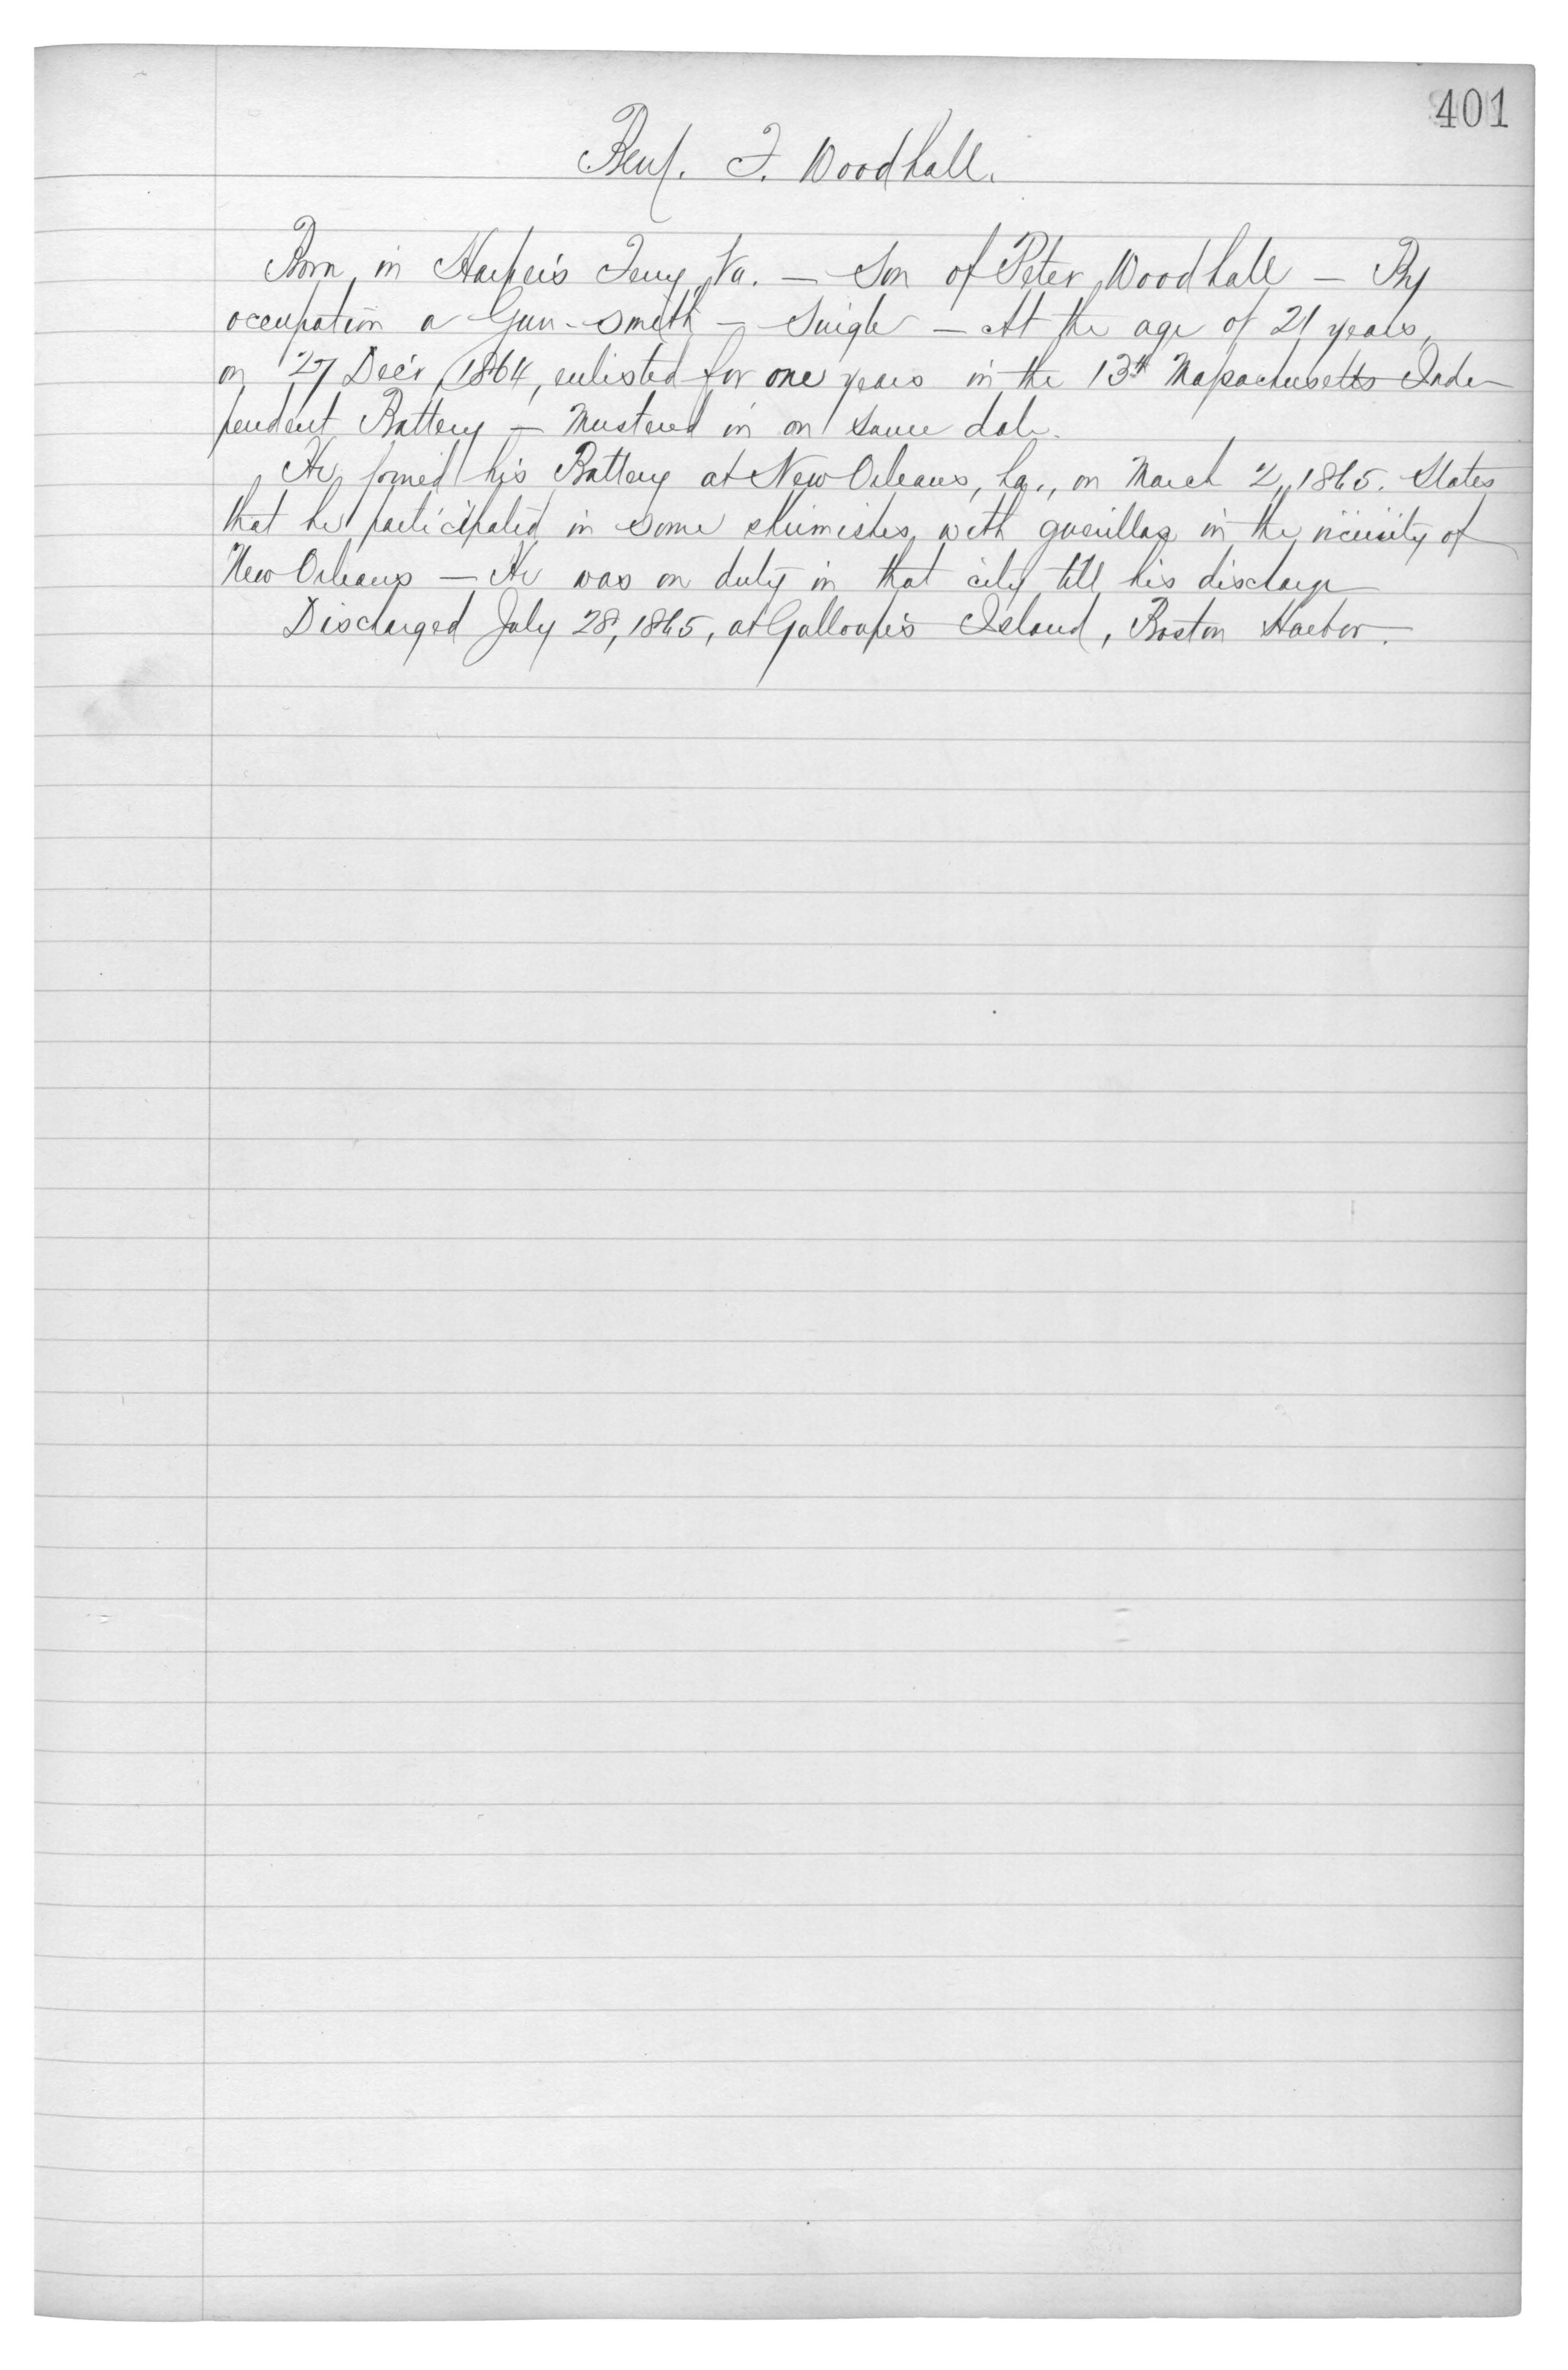 401
Benj. F. Woodhall.
Born in Harper's Ferry, Va. — Son of Peter Woodhall — By
occupation a Gun-smith — Single — At the age of 21 years,
on 27 Dec'r, 1864, enlisted for one years in the 13th Massachusetts Inde-
pendent Battery — Mustered in on same date.
He joined his Battery at New Orleans, La., on March 2, 1865. States
that he participated in some skirmishes with guerillas in the vicinity of
New Orleans — He was on duty in that city till his discharge
Discharged July 28, 1865, at Galloupe's Island, Boston Harbor.